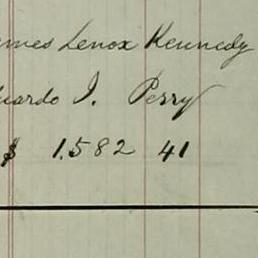 ames Lenox Kennedy
uardo I. Perry
$ 1.582 41